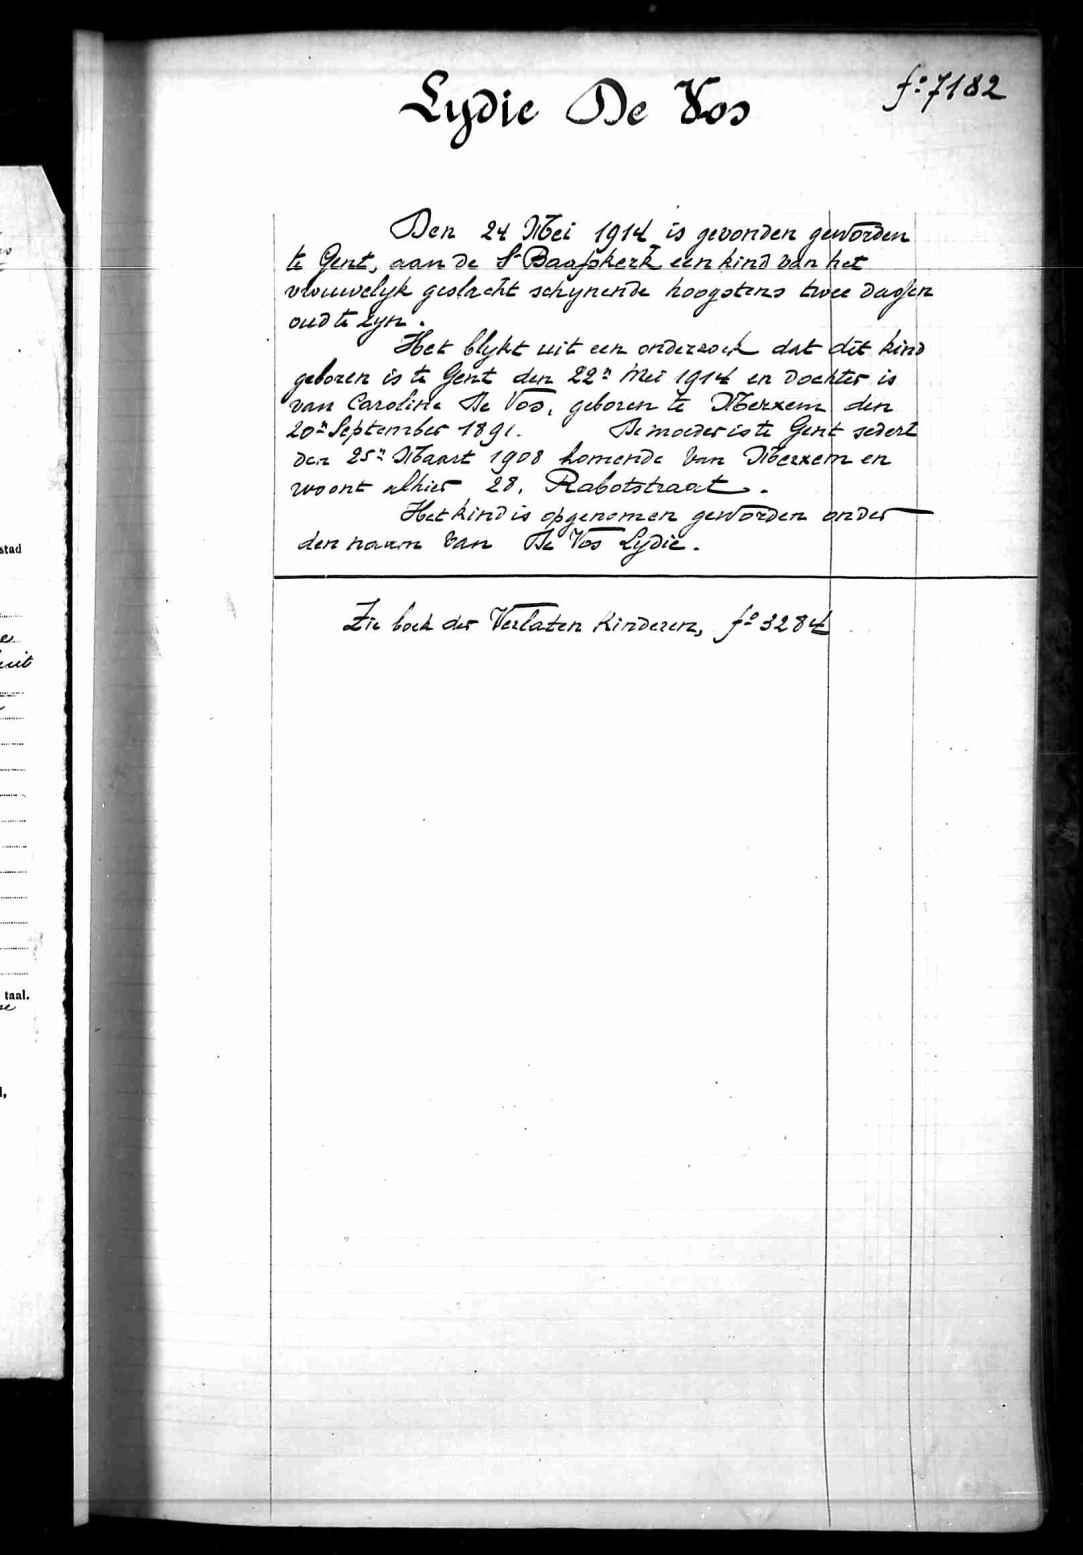 Lydie De Vos
fº 7182
Den 24 Mei 1914 is gevonden geworden
te Gent, aan de St Baafskerk een kind van het
vrouwelyk geslacht schynende hoogstens twee dagen
oud te zyn.
Het blykt uit een onderzoek dat dit kind
geboren is te Gent den 22n Mei 1914 en dochter is
van Caroline De Vos, geboren te Merxem den
20n September 1891. De moeder is te Gent sedert
den 25n Maart 1908 komende van Merxem en
woont alhier 28, Rabotstraat.
Het kind is opgenomen geworden onder
den naam van De Vos Lydie.
Zie boek der Verlaten Kinderen, fº 3284
stad
taal.